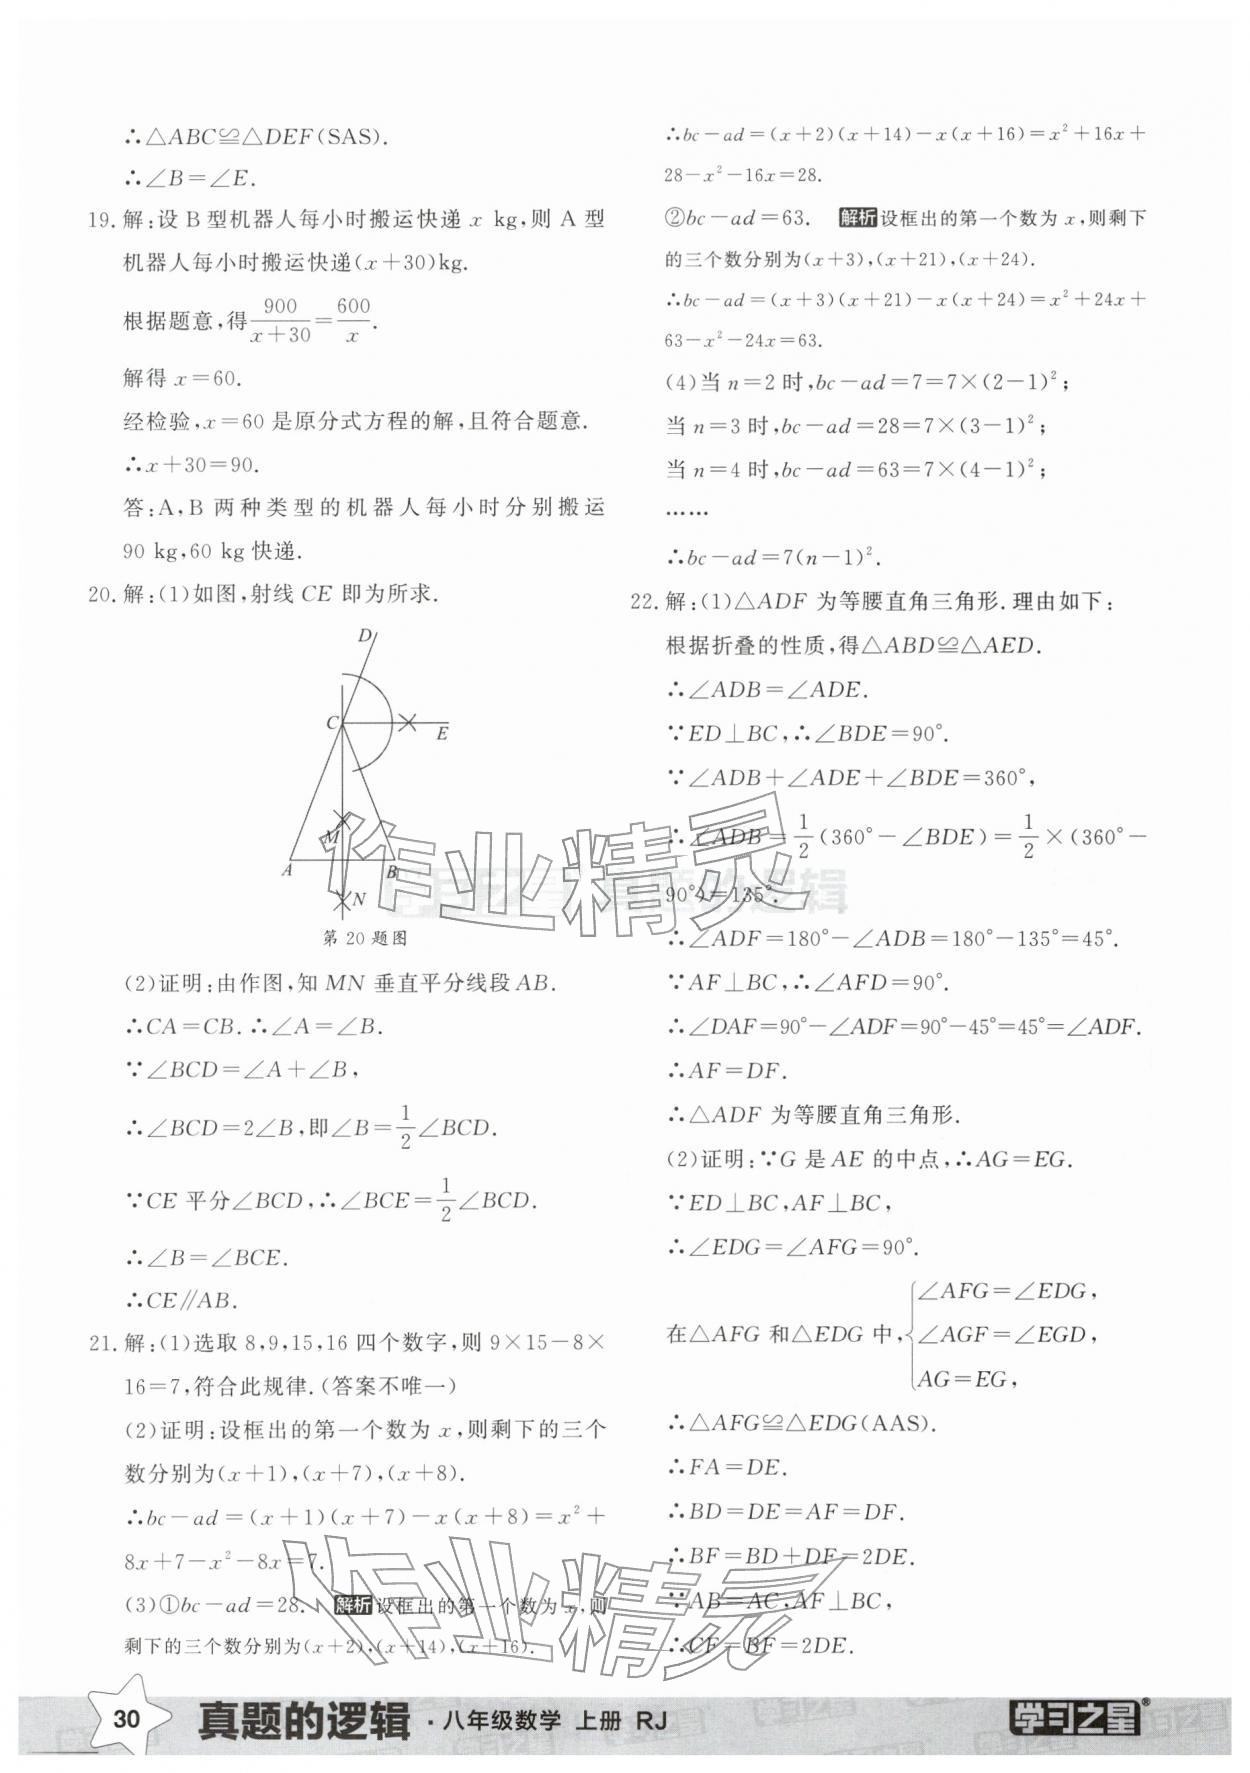 ∴△ABC≌△DEF(SAS).
∴∠B=∠E.
19. 解:设 B 型机器人每小时搬运快递 x kg,则 A 型
机器人每小时搬运快递(x+30)kg.
根据题意,得900/(x+30)=600/x.
解得 x=60.
经检验,x=60 是原分式方程的解,且符合题意.
∴x+30=90.
答:A,B 两种类型的机器人每小时分别搬运
90 kg,60 kg 快递.
20. 解:(1)如图,射线 CE 即为所求.
D
C
E
M
A
B
N
第 20 题图
(2)证明:由作图,知 MN 垂直平分线段 AB.
∴CA=CB.∴∠A=∠B.
∵∠BCD=∠A+∠B,
∴∠BCD=2∠B,即∠B=1/2∠BCD.
∵CE 平分∠BCD,∴∠BCE=1/2∠BCD.
∴∠B=∠BCE.
∴CE∥AB.
21. 解:(1)选取 8,9,15,16 四个数字,则 9×15-8×
16=7,符合此规律.(答案不唯一)
(2)证明:设框出的第一个数为 x,则剩下的三个
数分别为(x+1),(x+7),(x+8).
∴bc-ad=(x+1)(x+7)-x(x+8)=x²+
8x+7-x²-8x=7.
(3)①bc-ad=28. 解析 设框出的第一个数为 x,则
剩下的三个数分别为(x+2),(x+14),(x+16).
∴bc-ad=(x+2)(x+14)-x(x+16)=x²+16x+
28-x²-16x=28.
②bc-ad=63. 解析 设框出的第一个数为 x,则剩下
的三个数分别为(x+3),(x+21),(x+24).
∴bc-ad=(x+3)(x+21)-x(x+24)=x²+24x+
63-x²-24x=63.
(4)当 n=2 时,bc-ad=7=7×(2-1)²;
当 n=3 时,bc-ad=28=7×(3-1)²;
当 n=4 时,bc-ad=63=7×(4-1)²;
……
∴bc-ad=7(n-1)².
22. 解:(1)△ADF 为等腰直角三角形.理由如下:
根据折叠的性质,得△ABD≌△AED.
∴∠ADB=∠ADE.
∵ED⊥BC,∴∠BDE=90°.
∵∠ADB+∠ADE+∠BDE=360°,
∴∠ADB=1/2(360°-∠BDE)=1/2×(360°-
90°)=135°.
∴∠ADF=180°-∠ADB=180°-135°=45°.
∵AF⊥BC,∴∠AFD=90°.
∴∠DAF=90°-∠ADF=90°-45°=45°=∠ADF.
∴AF=DF.
∴△ADF 为等腰直角三角形.
(2)证明:∵G 是 AE 的中点,∴AG=EG.
∵ED⊥BC,AF⊥BC,
∴∠EDG=∠AFG=90°.
在△AFG 和△EDG 中,{∠AFG=∠EDG,
∠AGF=∠EGD,
AG=EG,
∴△AFG≌△EDG(AAS).
∴FA=DE.
∴BD=DE=AF=DF.
∴BF=BD+DF=2DE.
∵AB=AC,AF⊥BC,
∴CF=BF=2DE.
作业精灵
作业精灵
30 真题的逻辑·八年级数学 上册 RJ
学习之星®